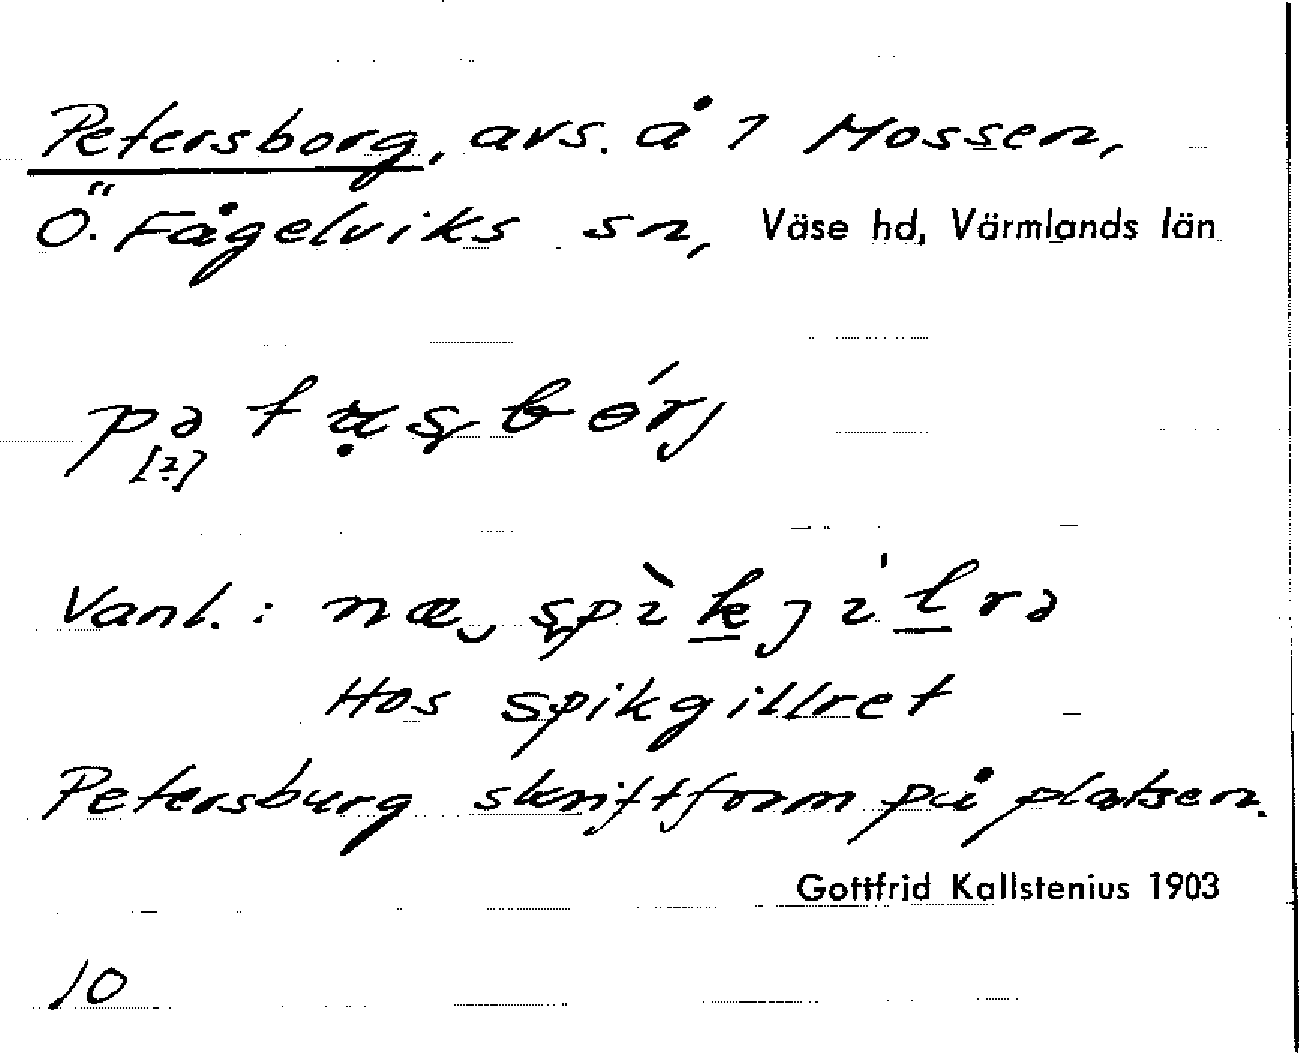 Petersborg, avs. å 1 Mossen,
Ö. Fågelviks sn, Väse hd, Värmlands län
Vanl.:
Hos spikgillret
Petersburg skriftform på platsen.
Gottfrid Kallstenius 1903
10